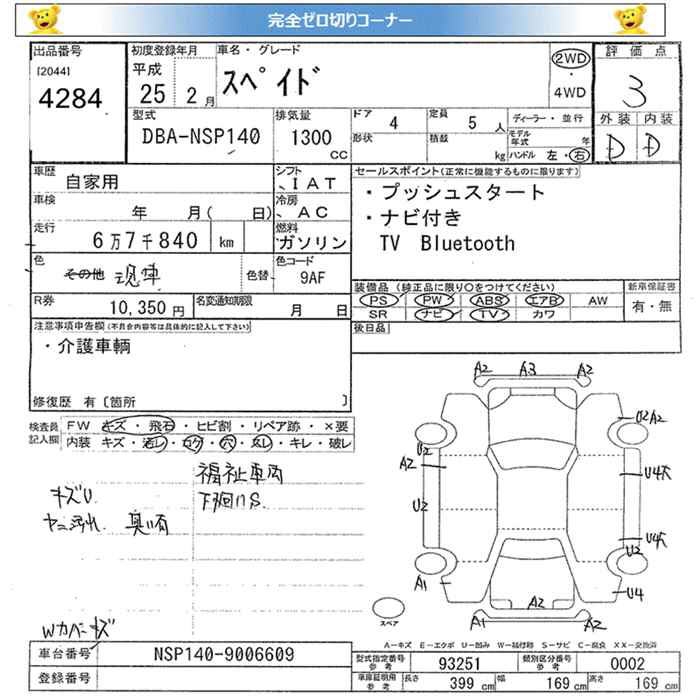 完全ゼロ切りコーナー
出品番号
[2044]
4284
初度登録年月
平成
25 2 月
車名・グレード
スペイド
2WD
・
4WD
評価点
3
外装 内装
D D
型式
DBA-NSP140
排気量
1300
CC
ドア
4
定員
5 人
ディーラー・並行
形状
積載
kg
モデル
年式 年
ハンドル 左・右
車歴
自家用
シフト
、IAT
車検
年 月( 日)
冷房
、AC
走行
6万7千840 km
燃料
ガソリン
色
その他 現車
色替
色コード
9AF
R券
10,350 円
名変通知期限
月 日
セールスポイント(正常に機能するものに限ります)
・プッシュスタート
・ナビ付き
TV Bluetooth
装備品(純正品に限り○をつけてください)
PS PW ABS エアB AW
SR ナビ TV カワ
新車保証書
有・無
後日品
注意事項申告欄(不具合内容等は具体的に記入して下さい)
・介護車輌
修復歴 有〔箇所 〕
検査員
記入欄
FW キズ・飛石・ヒビ割・リペア跡・×要
内装 キズ・汚レ・コゲ・穴・スレ・キレ・破レ
福祉車両
下廻りS.
キズU
ヤニ汚れ 臭い有
Wカバーキズ
A2 A3 A2
U2 A2
U2
A2
U2
U4
U4
U2
A1
A2
U4
A1 A2
スペア
A－キズ E－エクボ U－凹み W－補修跡 S－サビ C－腐食 XX－交換済
車台番号
NSP140-9006609
登録番号
型式指定番号
参考
93251
類別区分番号
参考
0002
車庫証明用
参考
長さ
399 cm
幅
169 cm
高さ
169 cm